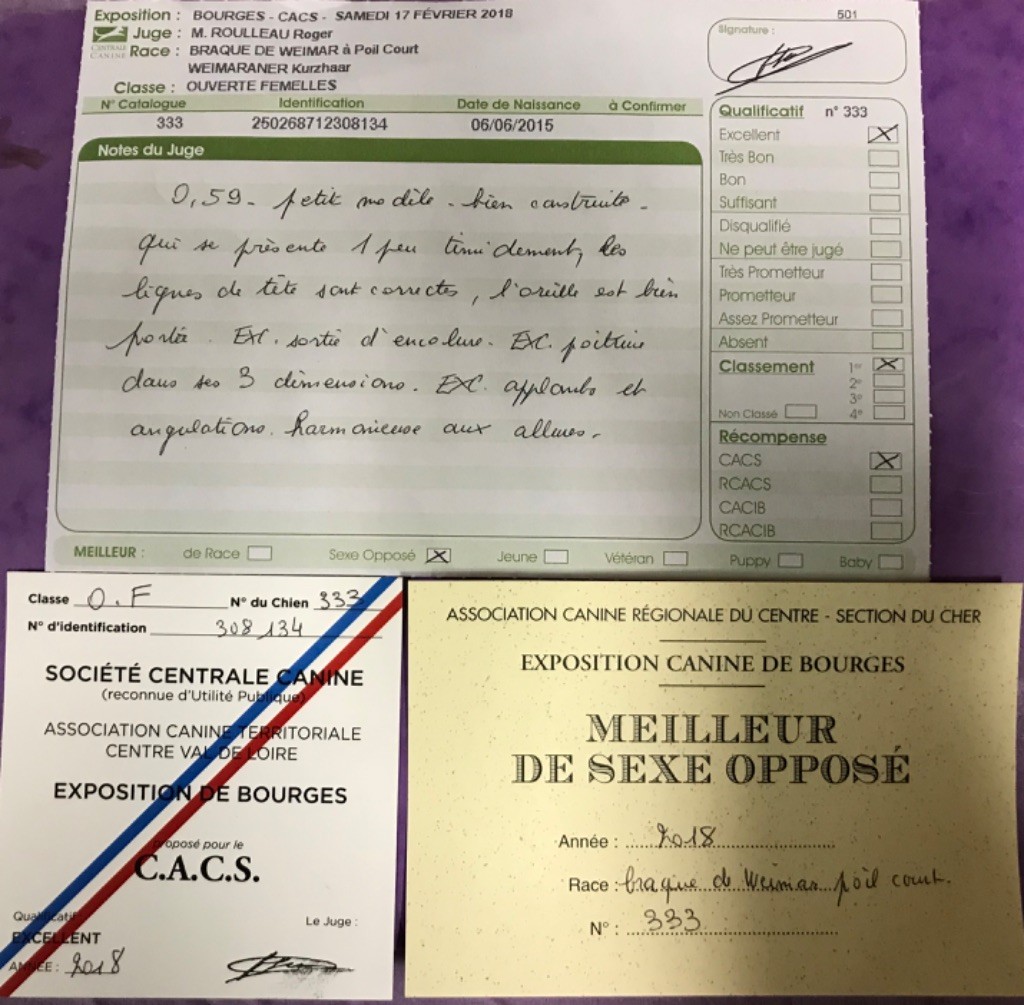 Exposition : BOURGES - CACS - SAMEDI 17 FÉVRIER 2018
501
Juge : M. ROULLEAU Roger
CENTRALE CANINE
Race : BRAQUE DE WEIMAR à Poil Court
WEIMARANER Kurzhaar
Classe : OUVERTE FEMELLES
Signature :
N° Catalogue Identification Date de Naissance à Confirmer
333 250268712308134 06/06/2015
Notes du Juge
0,59 - petit modèle - bien construite -
qui se présente 1 peu timidement, les
lignes de tête sont correctes, l'oreille est bien
portée. Exc. sortie d'encolure. Exc. poitrine
dans ses 3 dimensions. EXC. applombs et
angulations. harmonieuse aux allures.
Qualificatif n° 333
Excellent X
Très Bon
Bon
Suffisant
Disqualifié
Ne peut être jugé
Très Prometteur
Prometteur
Assez Prometteur
Absent
Classement 1er X
2e
3e
Non Classé 4e
Récompense
CACS X
RCACS
CACIB
RCACIB
MEILLEUR : de Race Sexe Opposé X Jeune Vétéran Puppy Baby
Classe O.F N° du Chien 333
N° d'identification 308134
SOCIÉTÉ CENTRALE CANINE
(reconnue d'Utilité Publique)
ASSOCIATION CANINE TERRITORIALE
CENTRE VAL DE LOIRE
EXPOSITION DE BOURGES
proposé pour le
C.A.C.S.
Qualificatif
Le Juge :
EXCELLENT
ANNÉE : 2018
ASSOCIATION CANINE RÉGIONALE DU CENTRE - SECTION DU CHER
EXPOSITION CANINE DE BOURGES
MEILLEUR
DE SEXE OPPOSÉ
Année : 2018
Race : braque de Weimar poil court.
N° : 333